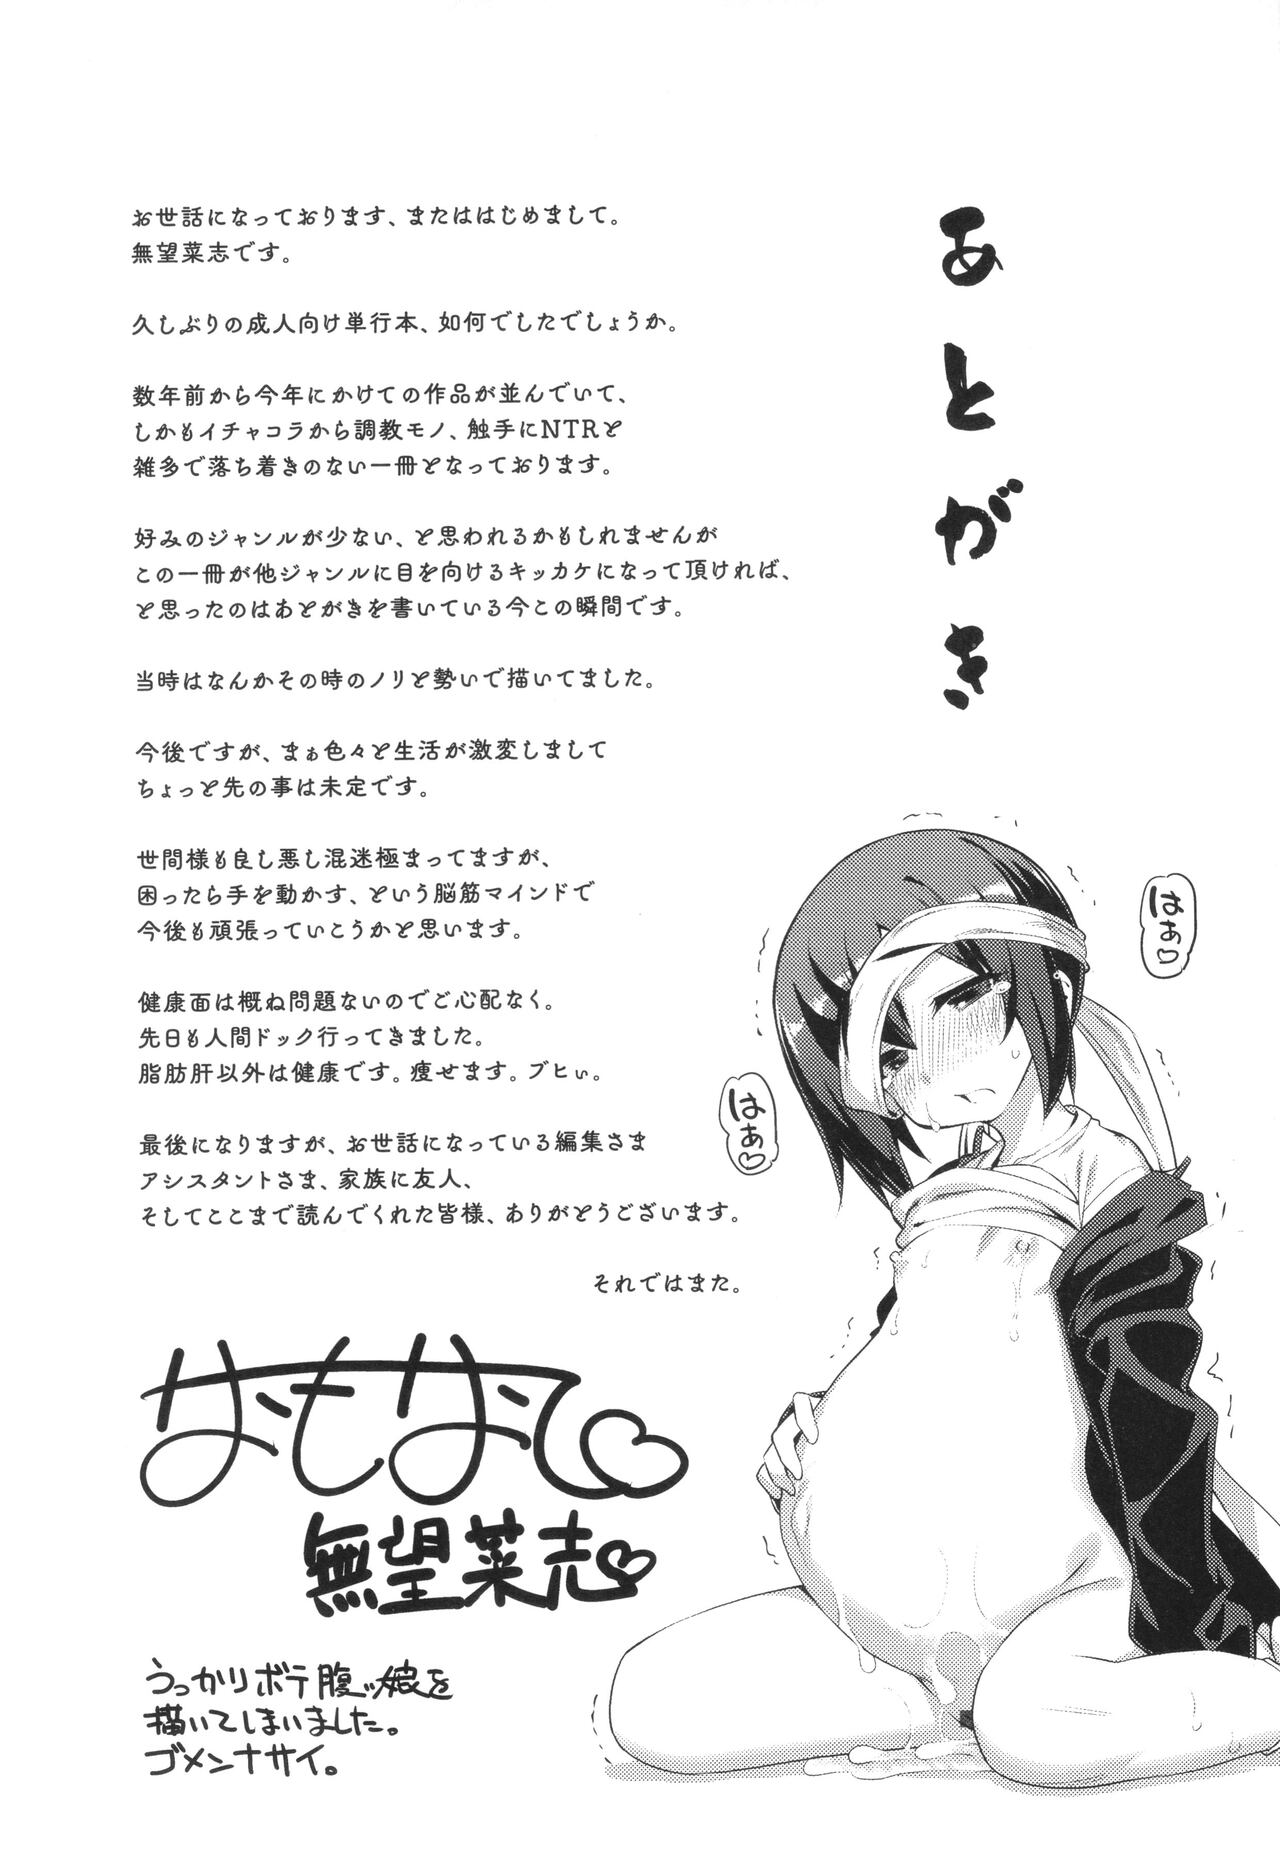 あとがき
お世話になっております、またははじめまして。
無望菜志です。
久しぶりの成人向け単行本、如何でしたでしょうか。
数年前から今年にかけての作品が並んでいて、
しかもイチャコラから調教モノ、触手にNTRと
雑多で落ち着きのない一冊となっております。
好みのジャンルが少ない、と思われるかもしれませんが
この一冊が他ジャンルに目を向けるキッカケになって頂ければ、
と思ったのはあとがきを書いている今この瞬間です。
当時はなんかその時のノリと勢いで描いてました。
今後ですが、まぁ色々と生活が激変しまして
ちょっと先の事は未定です。
世間様も良し悪し混迷極まってますが、
困ったら手を動かす、という脳筋マインドで
今後も頑張っていこうかと思います。
健康面は概ね問題ないのでご心配なく。
先日も人間ドック行ってきました。
脂肪肝以外は健康です。痩せます。ブヒぃ。
最後になりますが、お世話になっている編集さま
アシスタントさま、家族に友人、
そしてここまで読んでくれた皆様、ありがとうございます。
それではまた。
はぁ♡
はぁ♡
無望菜志♡
うっかりボテ腹ッ娘を
描いてしまいました。
ゴメンナサイ。